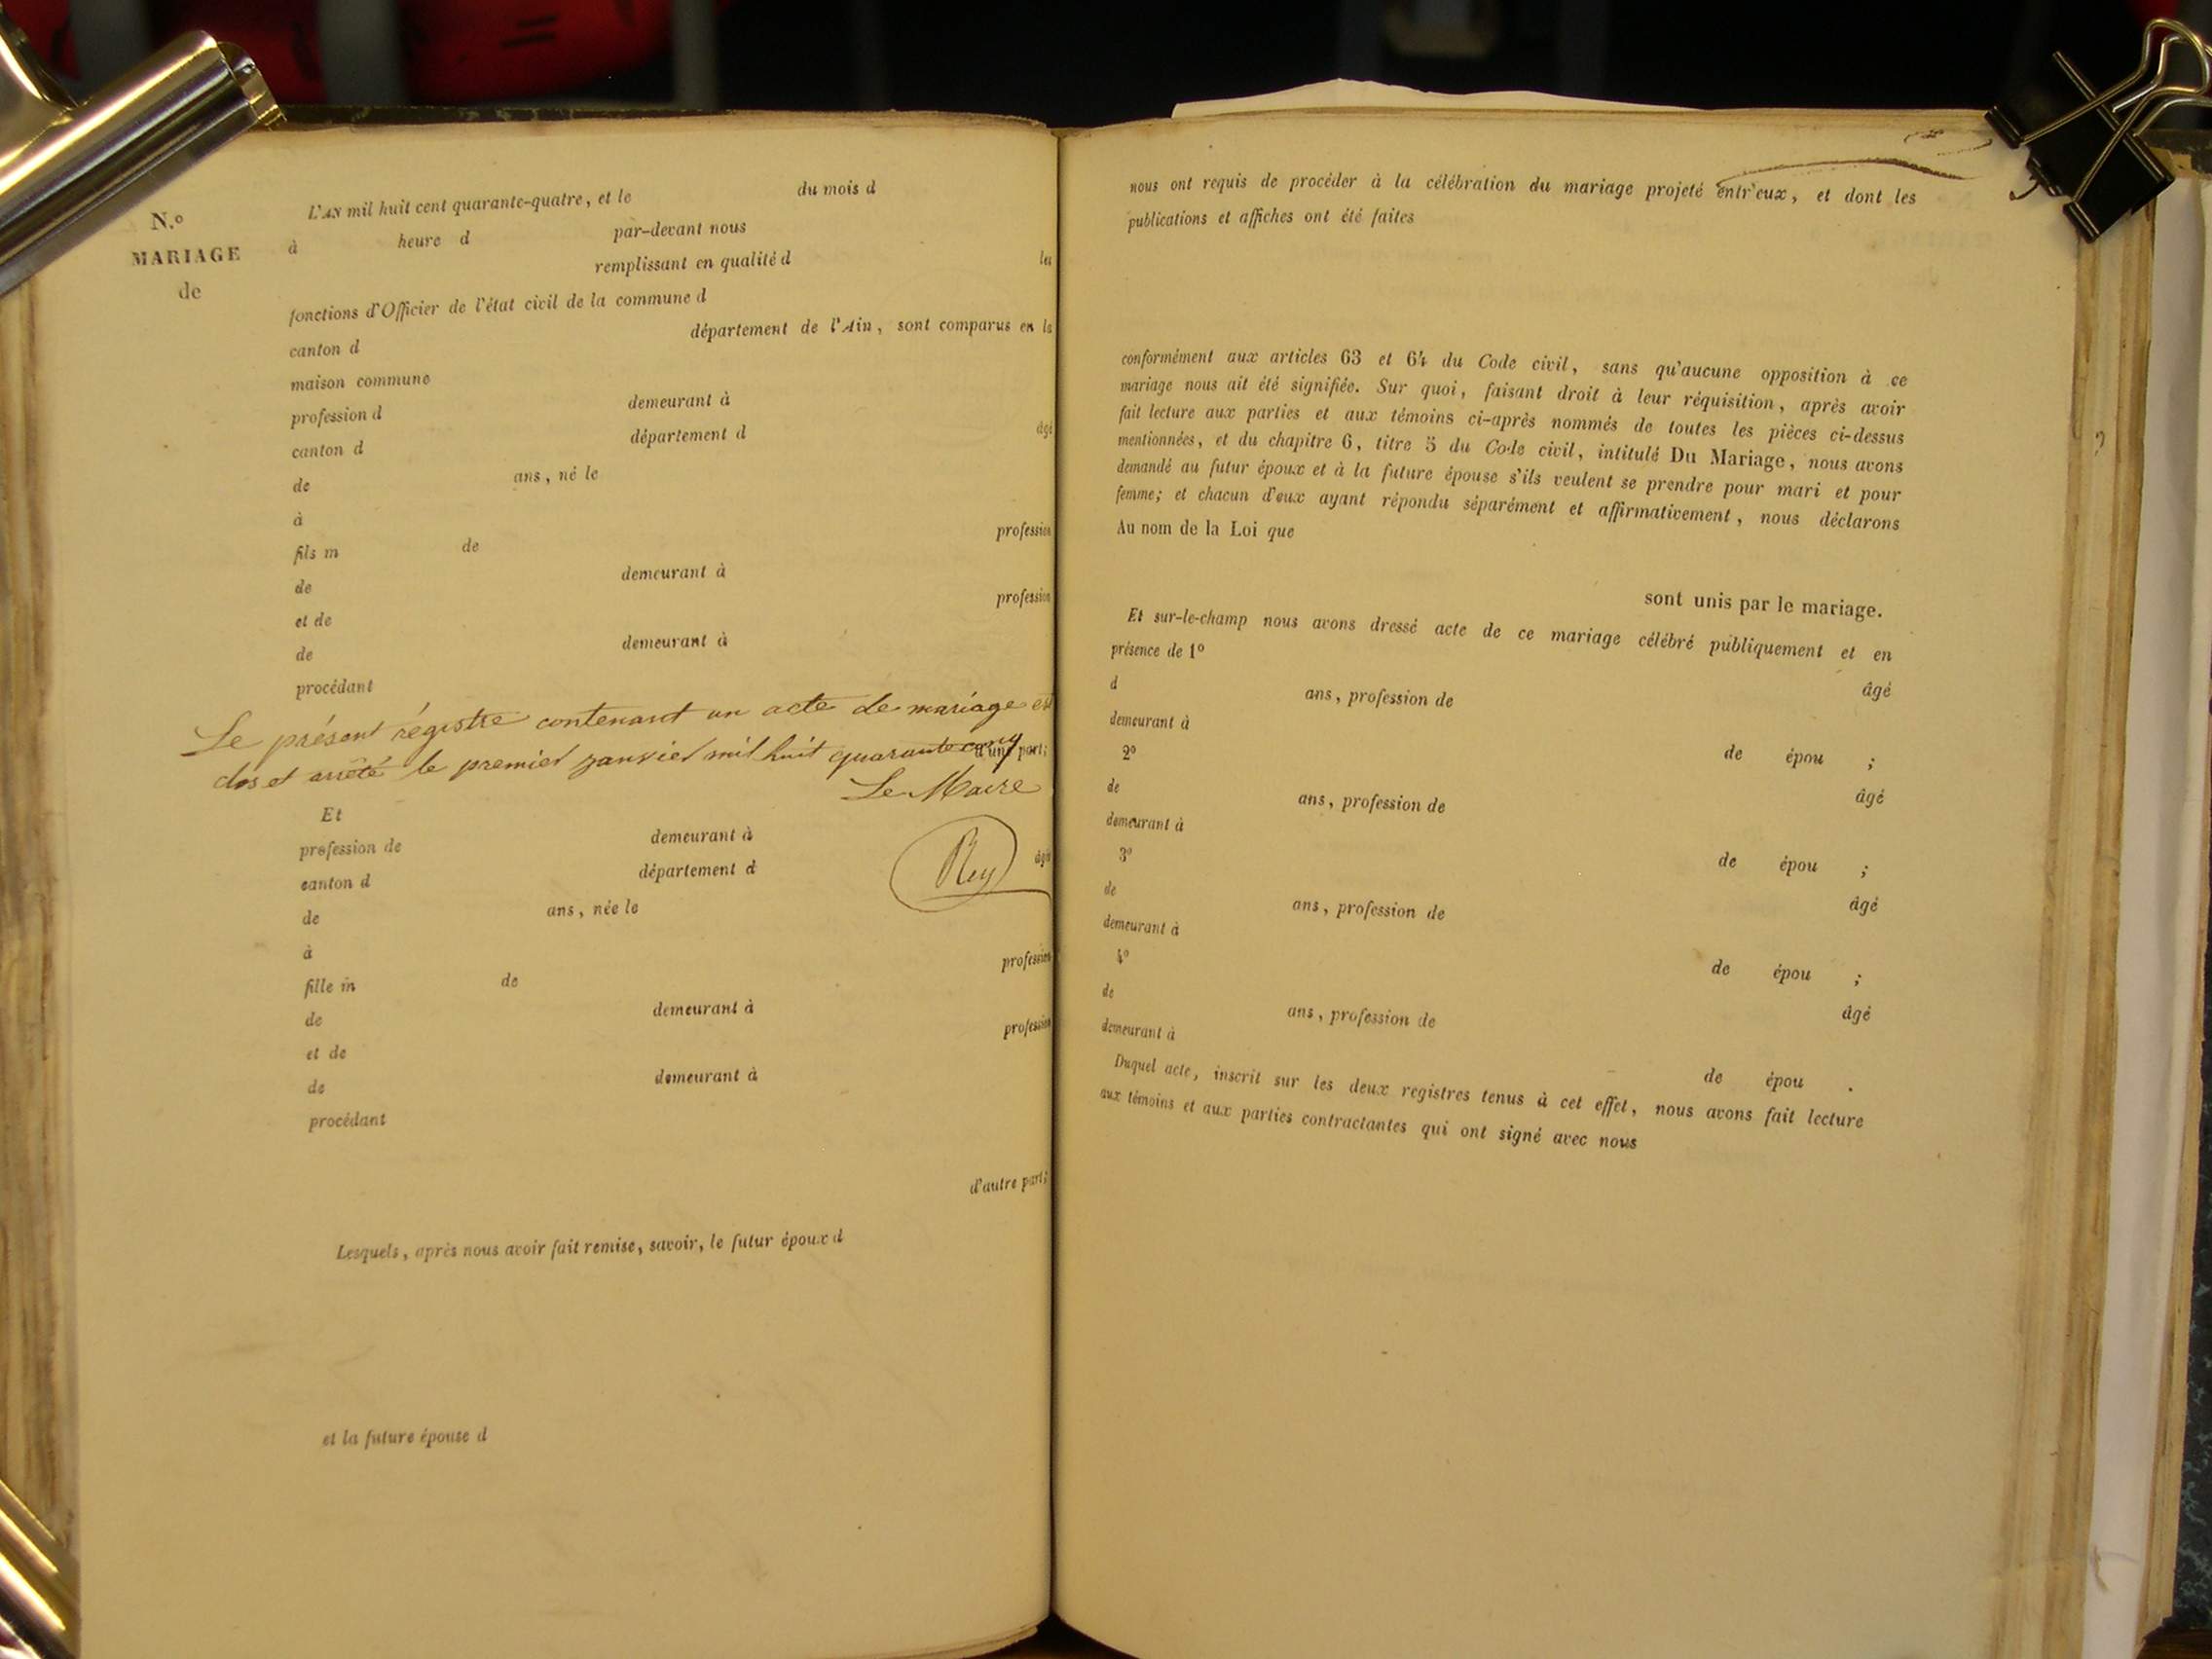 N.º
MARIAGE
de
L'AN mil huit cent quarante-quatre, et le du mois d
à heure d par-devant nous
remplissant en qualité d les
fonctions d'Officier de l'état civil de la commune d
canton d département de l'Ain, sont comparus en la
maison commune
profession d demeurant à
canton d département d âgé
de ans, né le
à
fils m de profession
de demeurant à
et de profession
de demeurant à
procédant
Le présent régistre contenant un acte de mariage est
clos et arrêté le premier janvier mil huit quarante cinq
d'une part;
Le Maire
Et
profession de demeurant à
canton d département d âgée
Rey
de ans, née le
à
fille m de profession
de demeurant à
et de profession
de demeurant à
procédant
d'autre part;
Lesquels, après nous avoir fait remise, savoir, le futur époux d
et la future épouse d
nous ont requis de procéder à la célébration du mariage projeté entr'eux, et dont les
publications et affiches ont été faites
conformément aux articles 63 et 64 du Code civil, sans qu'aucune opposition à ce
mariage nous ait été signifiée. Sur quoi, faisant droit à leur réquisition, après avoir
fait lecture aux parties et aux témoins ci-après nommés de toutes les pièces ci-dessus
mentionnées, et du chapitre 6, titre 5 du Code civil, intitulé Du Mariage, nous avons
demandé au futur époux et à la future épouse s'ils veulent se prendre pour mari et pour
femme; et chacun d'eux ayant répondu séparément et affirmativement, nous déclarons
Au nom de la Loi que
sont unis par le mariage.
Et sur-le-champ nous avons dressé acte de ce mariage célébré publiquement et en
présence de 1º
d ans, profession de âgé
demeurant à
2º de épou ;
de ans, profession de âgé
demeurant à
3º de épou ;
de ans, profession de âgé
demeurant à
4º de épou ;
de ans, profession de âgé
demeurant à
de épou .
Duquel acte, inscrit sur les deux registres tenus à cet effet, nous avons fait lecture
aux témoins et aux parties contractantes qui ont signé avec nous